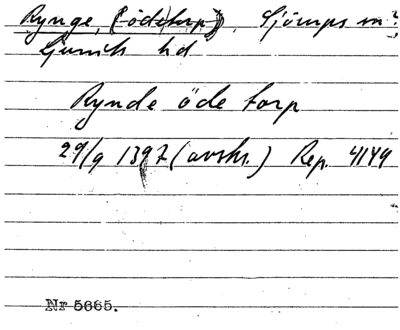 Rynge, (ödetorp), Sjörups sn?
Ljunits hd
Rynde öde torp
29/9 1397 (avskr.) Rep. 4149
Nr 5665.